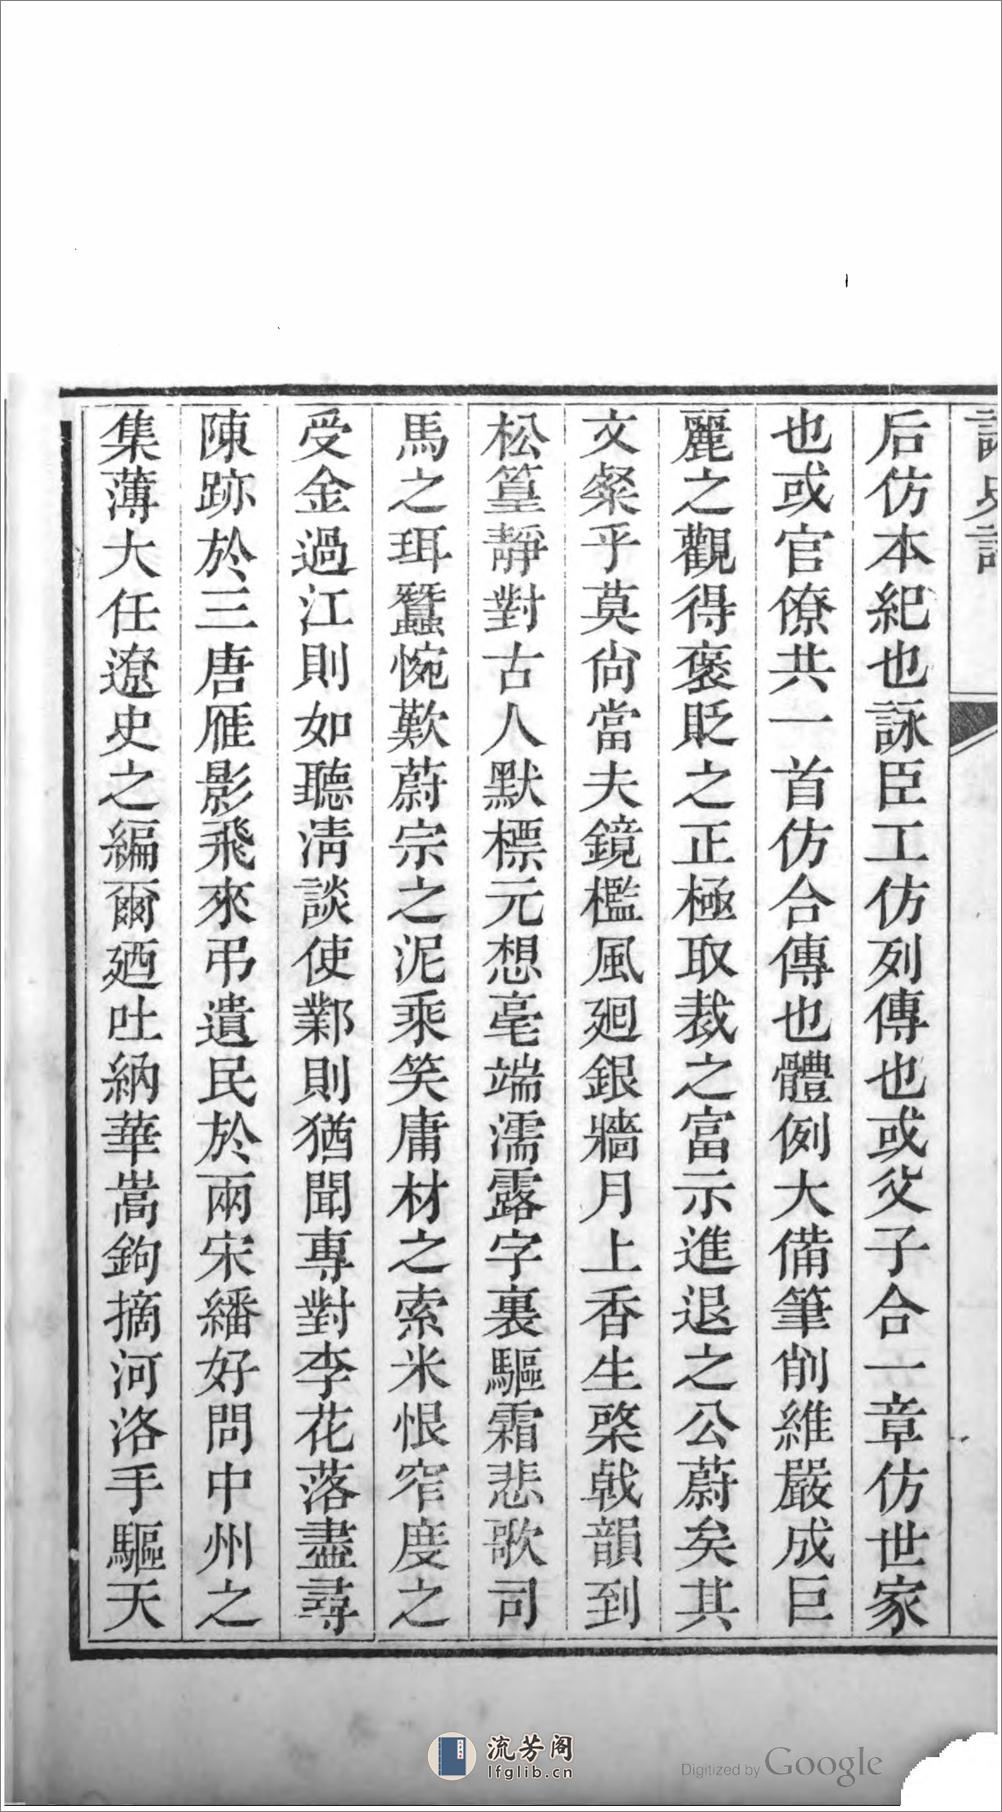 后仿本紀也詠臣工仿列傳也或父子合一章仿世家
也或官僚共一首仿合傳也體例大備筆削維嚴成巨
麗之觀得褒貶之正極取裁之富示進退之公蔚矣其
文粲乎莫尙當夫鏡檻風廻銀牆月上香生棨戟韻到
松篁靜對古人默標元想毫端濡露字裏驅霜悲歌司
馬之珥蠶惋歎蔚宗之泥乘笑庸材之索米恨窄度之
受金過江則如聽淸談使鄴則猶聞專對李花落盡尋
陳跡於三唐雁影飛來弔遺民於兩宋繙好問中州之
集薄大任遼史之編爾廼吐納華嵩鉤摘河洛手驅天
流芳阁
lfglib.cn
Digitized by Google